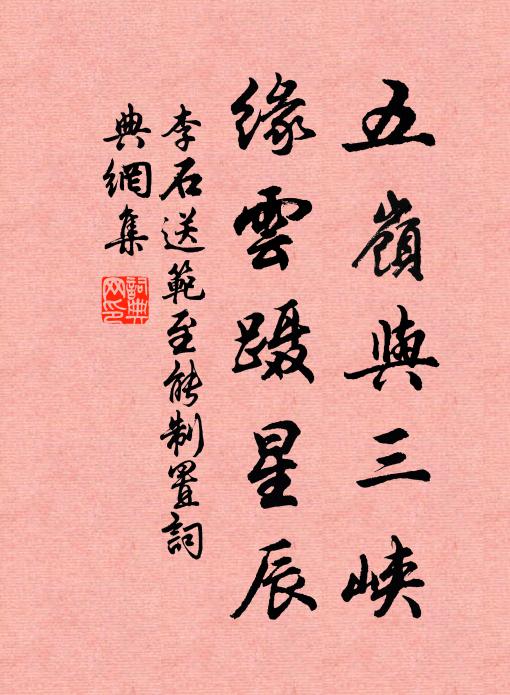 五嶺與三峽
緣雲蹑星辰
李石送範至能制置詞
典網集
詞典
网印